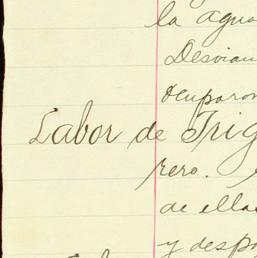 la agua
Desvian
Ocuparon
Labor de Trig
rero.
de ellas
y despo